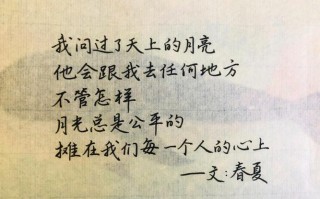 我问过了天上的月亮
他会跟我去任何地方
不管怎样
月光总是公平的
摊在我们每一个人的心上
——文:春夏